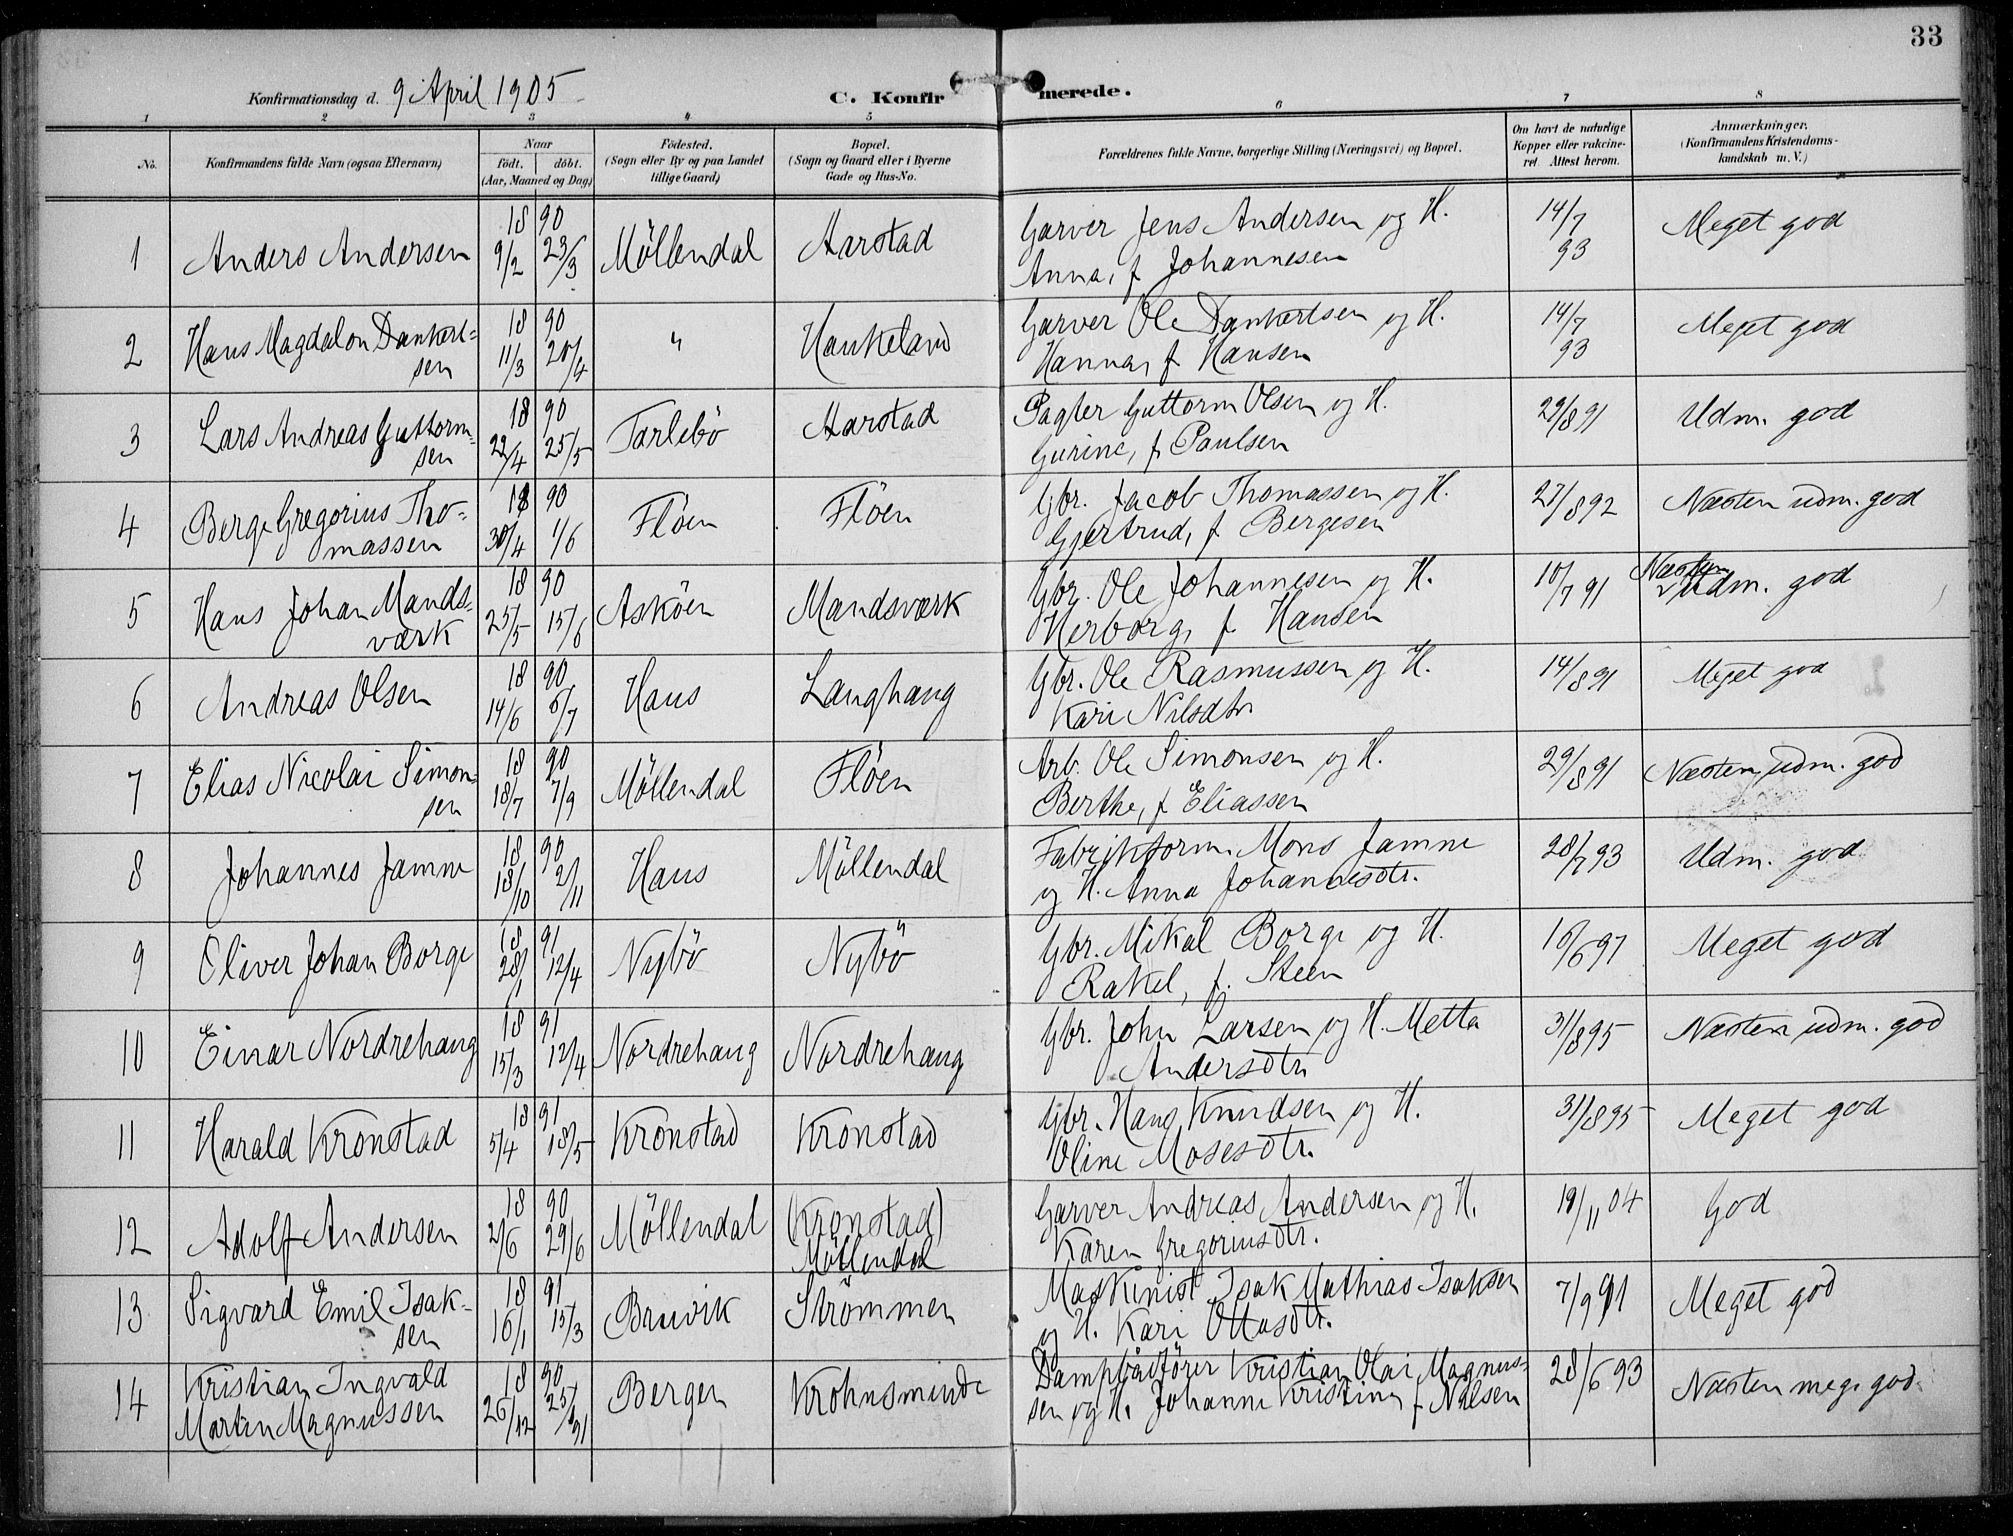 33
Konfirmationsdag d. 9 April 1905
C. Konfirmerede.
1 2 3 4 5 6 7 8
No.
Konfirmandens fulde Navn (ogsaa Efternavn)
Naar
födt. döbt.
(Aar, Maaned og Dag)
Födested.
(Sogn eller By og paa Landet
tillige Gaard)
Bopæl.
(Sogn og Gaard eller i Byerne
Gade og Hus-No.
Forældrenes fulde Navne, borgerlige Stilling (Næringsvei) og Bopæl.
Om havt de naturlige
Kopper eller vakcine-
ret. Attest herom.
Anmærkninger.
(Konfirmandens Kristendoms-
kundskab m. V.)
1 Anders Andersen 18 90 9/2 23/3 Möllendal Aarstad Garver Jens Andersen og H. 14/7 93 Meget god
Anna, f Johannesen
2 Hans Magdalon Dankert- 18 90 11/3 20/4 " Haukeland Garver Ole Dankertsen og H. 14/7 93 Meget god
sen Hanna, f Hansen
3 Lars Andreas Guttorm- 18 90 22/4 25/5 Tarlebö Aarstad Pagter Guttorm Olsen og H. 29/8 91 Udm. god
sen Gurine, f Paulsen
4 Berge Gregorius Tho- 18 90 30/4 1/6 Flöen Flöen Gbr. Jacob Thomassen og H. 27/8 92 Næsten udm. god
massen Gjertrud, f Bergesen
5 Hans Johan Mands- 18 90 25/5 15/6 Asköen Mandsværk Gbr. Ole Johannesen og H. 10/7 91 Næsten Udm. god
værk Herborg, f Hansen
6 Andreas Olsen 18 90 14/6 6/7 Haus Langhaug Gbr. Ole Rasmussen og H. 14/8 91 Meget god
Kari Nilsdtr
7 Elias Nicolai Simon- 18 90 18/7 7/9 Möllendal Flöen Arb. Ole Simonsen og H. 29/8 91 Næsten udm. god
sen Berthe, f Eliassen
8 Johannes Jamne 18 90 18/10 2/11 Haus Möllendal Fabrikform. Mons Jamne 28/7 93 Udm. god
og H. Anna Johannesdtr.
9 Oliver Johan Borge 18 91 28/1 12/4 Nybö Nybö Gbr. Mikal Borge og H. 16/6 97 Meget god
Rakel, f. Steen
10 Einar Nordrehaug 18 91 15/3 12/4 Nordrehaug Nordrehaug Gbr. John Larsen og H. Metta 31/8 95 Næsten udm. god
Andersdtr
11 Harald Kronstad 18 91 5/4 18/5 Kronstad Kronstad Gbr. Hans Knudsen og H. 31/8 95 Meget god
Oline Mosesdtr.
12 Adolf Andersen 18 90 2/6 29/6 Möllendal (Kronstad) Garver Andreas Andersen og H. 19/11 04 God
Möllendal Karen Gregoriusdtr.
13 Sigvard Emil Isak- 18 91 16/1 15/3 Bruvik Strömmen Maskinist Isak Mathias Isaksen 7/9 91 Meget god
sen og H. Kari Ottosdtr.
14 Kristian Ingvald 18 90 26/12 25/1 91 Bergen Krohnsminde Dampbaadförer Kristian Olai Magnus- 28/6 93 Næsten meg. god
Martin Magnussen sen og H. Johanne Kristine, f Nilsen